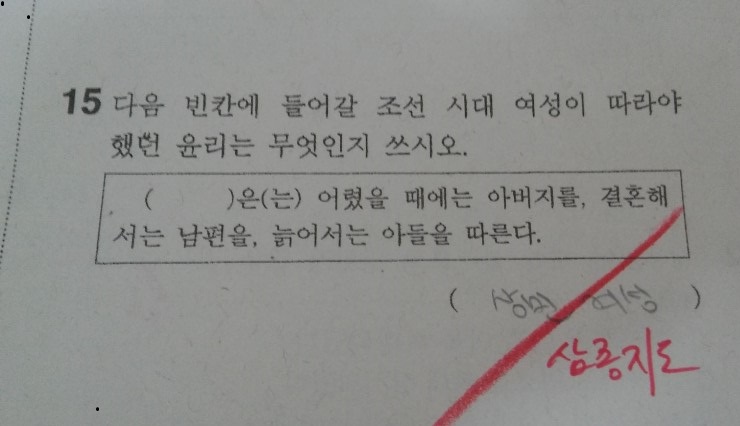 15 다음 빈칸에 들어갈 조선 시대 여성이 따라야
했던 윤리는 무엇인지 쓰시오.
( )은(는) 어렸을 때에는 아버지를, 결혼해
서는 남편을, 늙어서는 아들을 따른다.
( 상민 여성 )
삼종지도